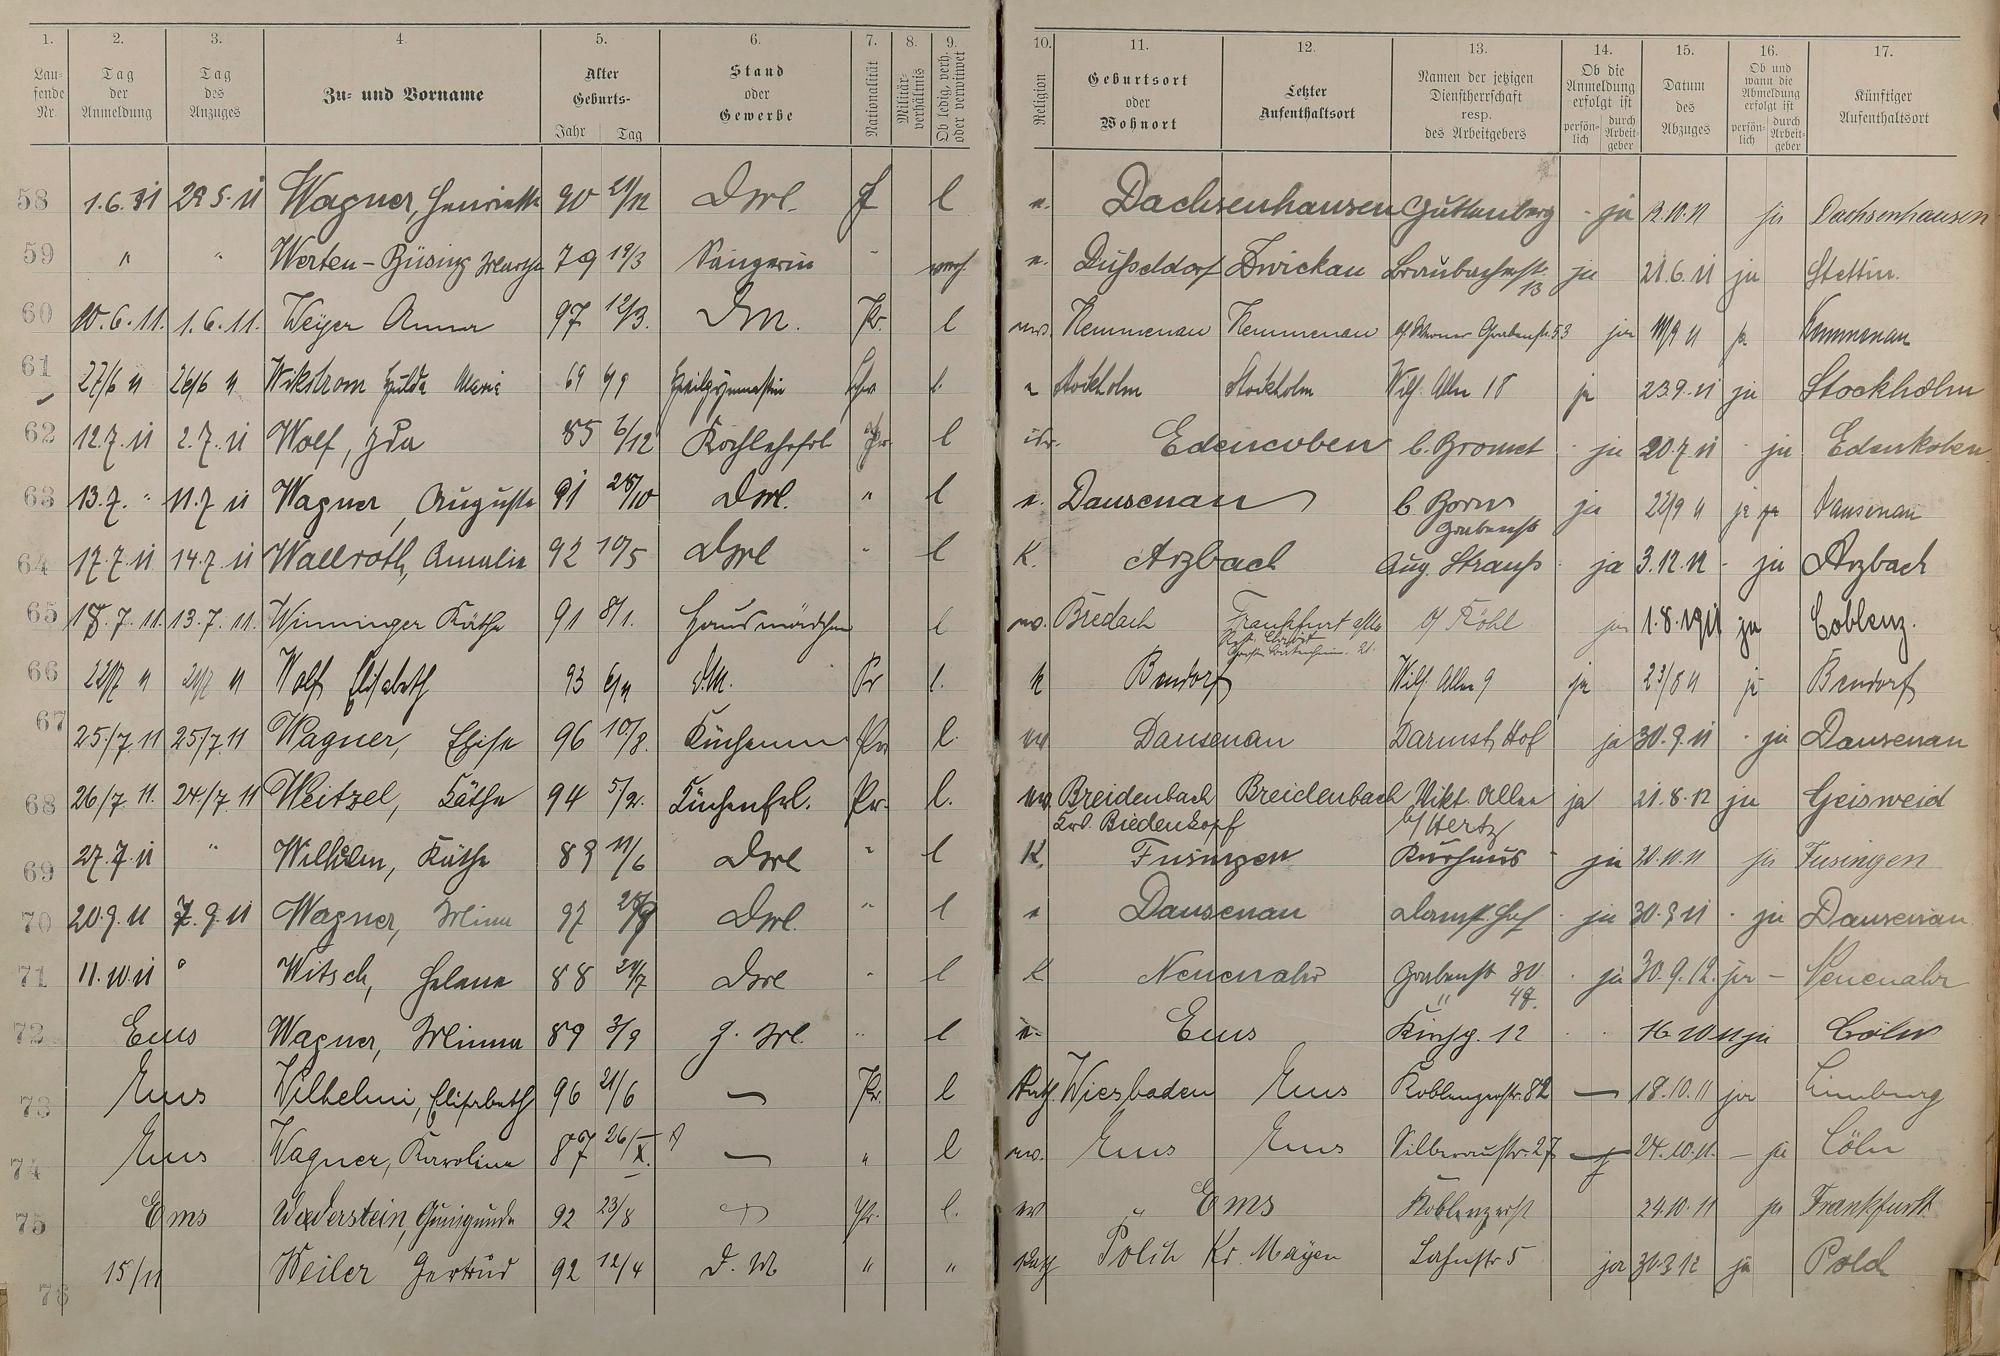 1. 2. 3. 4 5. 6. 7. 8. 9. 10. 11. 12. 13. 14. 15. 16. 17.
Lau-
fende
Nr.
Tag
der
Anmeldung
Tag
des
Anzuges
Zu- und Vorname
Alter
Geburts-
Jahr Tag
Stand
oder
Gewerbe
Nationalität
Militär-
verhältnis
Ob ledig, verh.
oder verwitwet
Religion
Geburtsort
oder
Wohnort
Letzter
Aufenthaltsort
Namen der jetzigen
Dienstherrschaft
resp.
des Arbeitgebers
Ob die
Anmeldung
erfolgt ist
persön-
lich
durch
Arbeit-
geber
Datum
des
Abzuges
Ob und
wann die
Abmeldung
erfolgt ist
persön-
lich
durch
Arbeit-
geber
Künftiger
Aufenthaltsort
58 1.6.11 29.5.11 Wagner, Henriette 90 l e. Dachsenhausen Guttenberg - ja 12.10.11 ja Dachsenhausen
59 " " Werten-Büsing 79 19/3 Sängerin verh. e. Düsseldorf Zwickau Braubacherstr. 13 ja 21.6.11 ja Stettin.
60 10.6.11. 1.6.11. Weyer Anna 97 12/3. DM. Pr. l ev. Kemmenau Kemmenau Grabenstr. 53 ja ja Kemmenau
61 27/6 11 26/6 11 Wikstrom Hulda Maria 69 Heilgymnastin l. Stockholm Stockholm Wilh. Allee 18 ja 23.9.11 ja Stockholm
62 12.7.11 2.7.11 Wolf, Ida 85 6/12 Kochlehrfrl l isr. Edencoben b. Bromet - ja 20.7.11 - ja Edenkoben
63 13.7. " 11.7.11 Wagner, Auguste 91 28/10 " l e. Dausenau b Born Grabenstr ja 22/9 11 ja Dausenau
64 17.7.11 14.7.11 Wallroth, Amalie 92 10/5 " l K. Arzbach Aug. Strauß - ja 3.12.12 - ja Arzbach
65 18.7.11. 13.7.11. Winninger Käthe 91 8/1. Hausmädchen l ev. Bredach Frankfurt a/M b/ Köhl ja 1.8.1911 ja Coblenz.
66 22/7 11 21/7 11 Wolf Elisabeth 93 6/11 d.M. Pr l. k Bendorf Wilh Allee 9 ja 23/8 11 ja Bendorf
67 25/7.11 25/7.11 Wagner, Elise 96 10/8. Küchenm Pr l. ev Dausenau Darmst. Hof ja 30.9.11 - ja Dausenau
68 26/7.11. 24/7.11 Weitzel, Käthe 94 5/2. Küchenfrl. Pr. l. ev. Breidenbach Krs. Biedenkopf Breidenbach Vikt. Allee b/ Hertz ja 21.8.12 ja Geisweid
69 27.7.11 " Wilhelm, Käthe 89 11/6 " l K. Fusingen Kurhaus - ja 20.10.11 ja Fusingen
70 20.9.11 7.9.11 Wagner, Minna 97 " l e Dausenau Darmst. Hof - ja 30.9.11 - ja Dausenau
71 11.10.11 " Witsch, Helene 88 24/7 " l K Neuenahr Grabenstr 30 " 48. - ja 30.9.12. ja - Neuenahr
72 Ems Wagner, Minna 89 3/9 " l e. Ems 12 16.10.11 ja Cöln
73 Ems Wilhelmi, Elisabeth 96 21/6 — Pr. l Kath. Wiesbaden Ems Koblenzerstr. 82 — 18.10.11 ja Limburg
74 Ems Wagner, Karoline 87 26/X. — " l ev. Ems Ems Silberaustr. 27 — 24.10.11. — ja Cöln
75 Ems Waderstein, Gunigunda 92 23/8 Pr. l. ev Ems Koblenzerst 24.10.11 ja Frankfurt.
76 15/11 Weiler Gertrud 92 12/4 D. M " " Kath Polch Kr. Mayen Lahnstr 5 ja 30.3.12 ja Polch